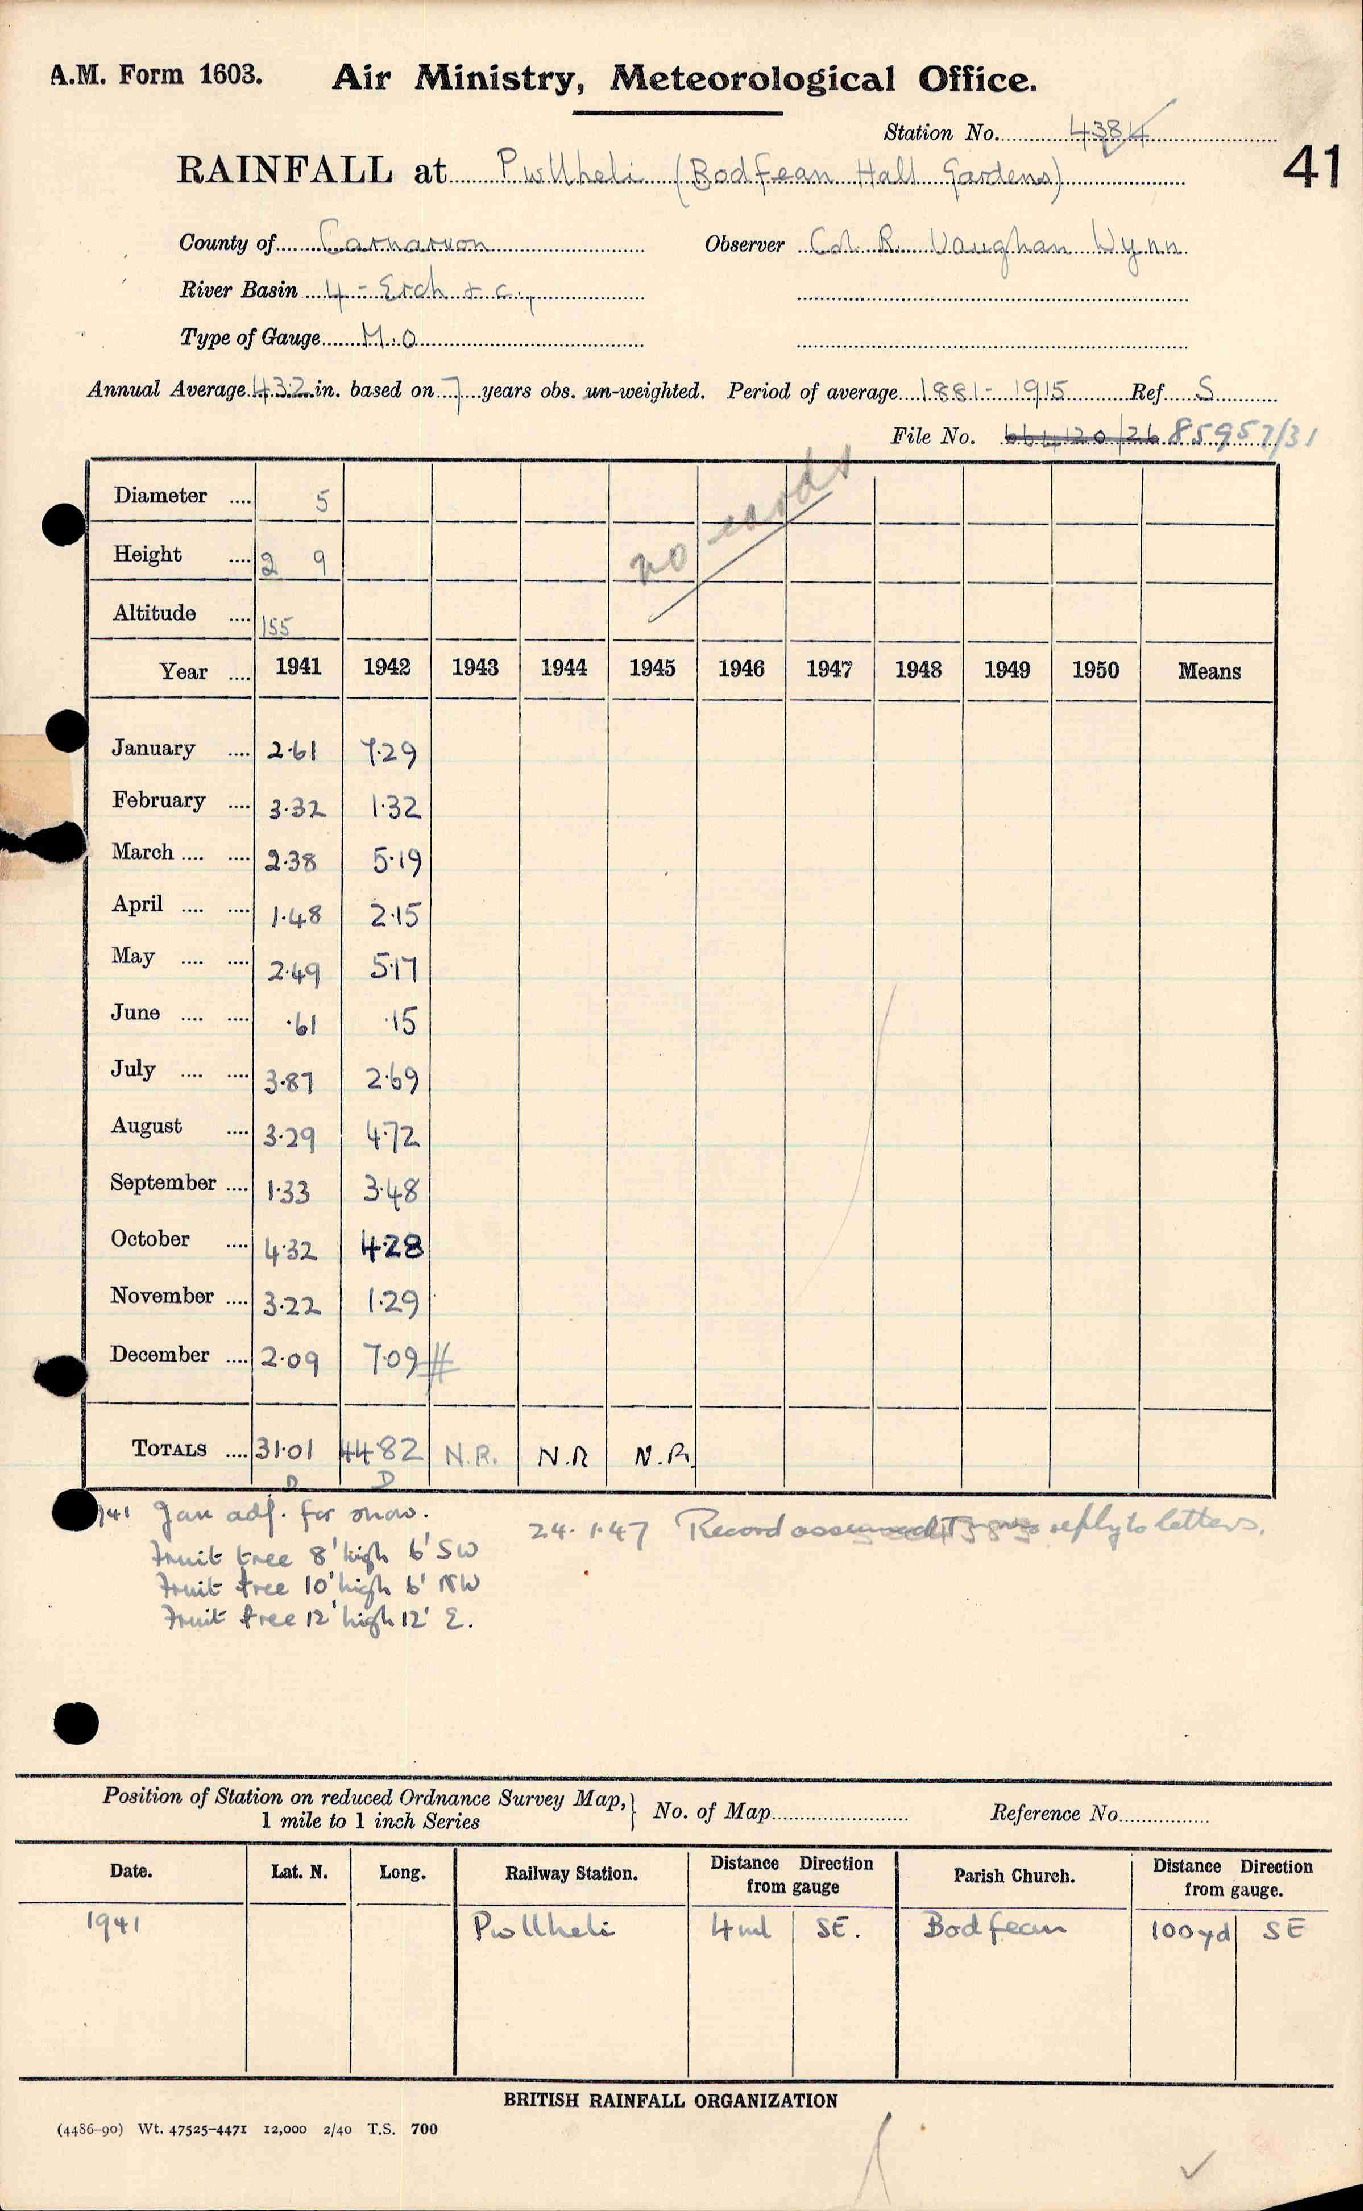 A.M. Form 1603. Air Ministry, Meteorological Office.
Station No. 4384
41
RAINFALL at Pwllheli (Bodfean Hall Gardens)
County of Carnarvon Observer Col. R. Vaughan Wynn
River Basin 4 - Erch + c.,
Type of Gauge M.O
Annual Average 43.2 in. based on 7 years obs. un-weighted. Period of average 1881-1915 Ref S
File No. 85957/31
no cards
Diameter .... 5
Height .... 2 9
Altitude .... 155
Year .... 1941 1942 1943 1944 1945 1946 1947 1948 1949 1950 Means
January .... 2.61 7.29
February .... 3.32 1.32
March .... .... 2.38 5.19
April .... .... 1.48 2.15
May .... .... 2.49 5.17
June .... .... .61 .15
July .... .... 3.87 2.69
August .... 3.29 4.72
September .... 1.33 3.48
October .... 4.32 4.28
November .... 3.22 1.29
December .... 2.09 7.09 #
TOTALS .... 31.01 44.82 N.R. N.R N.R.
D D
1941 Jan adj. for snow.
Fruit tree 8' high 6' SW
Fruit tree 10' high 6' NW
Fruit tree 12' high 12' E.
24.1.47 Record reply to letters.
Position of Station on reduced Ordnance Survey Map,
1 mile to 1 inch Series
No. of Map Reference No.
Date. Lat. N. Long. Railway Station. Distance Direction from gauge Parish Church. Distance Direction from gauge.
1941 Pwllheli 4ml SE. Bodfean 100yd SE
BRITISH RAINFALL ORGANIZATION
(4486-90) Wt. 47525-4471 12,000 2/40 T.S. 700